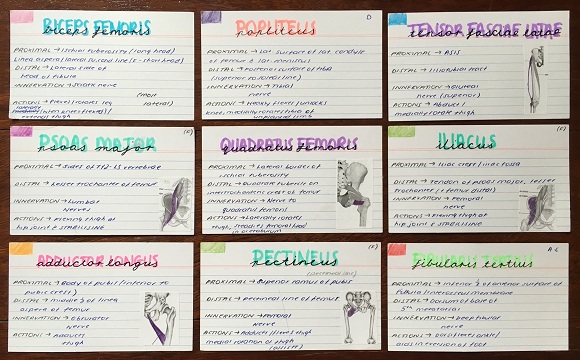 BICEPS FEMORIS
biceps femoris
PROXIMAL → Ischial tuberosity (long head)
Linea aspera/lateral sucond line (S - short head)
DISTAL → Lateral side of
head of fibula
INNERVATION → Sciatic nerve
ACTIONS → Flexes/rotates leg
lateral)
POPLITEUS
popliteus
D
PROXIMAL → Lat surface of lat condyle
of femur & lat meniscus
DISTAL → Posterior surface of tibia
(superior to soleal line)
INNERVATION → Tibial
nerve
ACTIONS → Weakly flexes/unlocks
knee, medially rotates tibia of
unplanted limb
TENSOR FASCIAE LATAE
tensor fasciae latae
PROXIMAL → ASIS
DISTAL → Iliotibial tract
INNERVATION → Gluteal
nerve (superior)
ACTIONS → Abduct/
medially rotate thigh
PSOAS MAJOR
psoas major
(C)
PROXIMAL → Sides of T12-L5 vertebrae
DISTAL → Lesser trochanter of femur
INNERVATION → Lumbar
nerves
ACTIONS → Flexing thigh at
hip joint & STABILISING
QUADRATUS FEMORIS
quadratus femoris
PROXIMAL → Lateral border of
ischial tuberosity
DISTAL → Quadrate tubercle on
intertrochanteric crest of femur
INNERVATION → Nerve to
quadratus femoris
ACTIONS → Laterally rotates
thigh, steadies femoral head
in acetabulum
ILIACUS
iliacus
(C)
PROXIMAL → Iliac crest/iliac fossa
DISTAL → Tendon of psoas major, lesser
trochanter (& femur distal)
INNERVATION → Femoral
nerve
ACTIONS → Flexing thigh at
hip joint & STABILISING
ADDUCTOR LONGUS
adductor longus
PROXIMAL → Body of pubis (inferior to
pubic crest)
DISTAL → Middle ⅓ of linea
aspera of femur
INNERVATION → Obturator
nerve
ACTIONS → Adducts
thigh
PECTINEUS
pectineus
PROXIMAL → Superior ramus of pubis
DISTAL → Pectineal line of femur
INNERVATION → Femoral
nerve
ACTIONS → Adducts/flexes thigh
medial rotation of thigh
(assists)
FIBULARIS TERTIUS
fibularis tertius
PROXIMAL → Inferior ⅓ of anterior surface of
fibula/interosseus membrane
DISTAL → Dorsum of base of
5th metatarsal
INNERVATION → Deep fibular
nerve
ACTIONS → Dorsiflexes ankle/
aids in eversion of foot